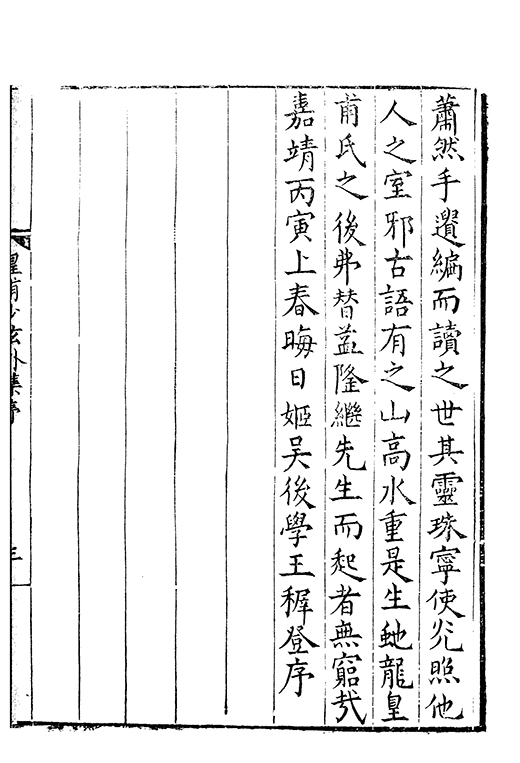 蕭然手遺編而讀之世其靈珠寧使光照他
人之室邪古語有之山高水重是生虵龍皇
甫氏之後弗替益隆繼先生而起者無窮哉
嘉靖丙寅上春晦日姬吳後學王穉登序
皇甫少玄外集序
三